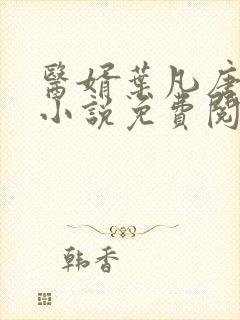 醫婿葉凡唐
小說免費閱
韩香